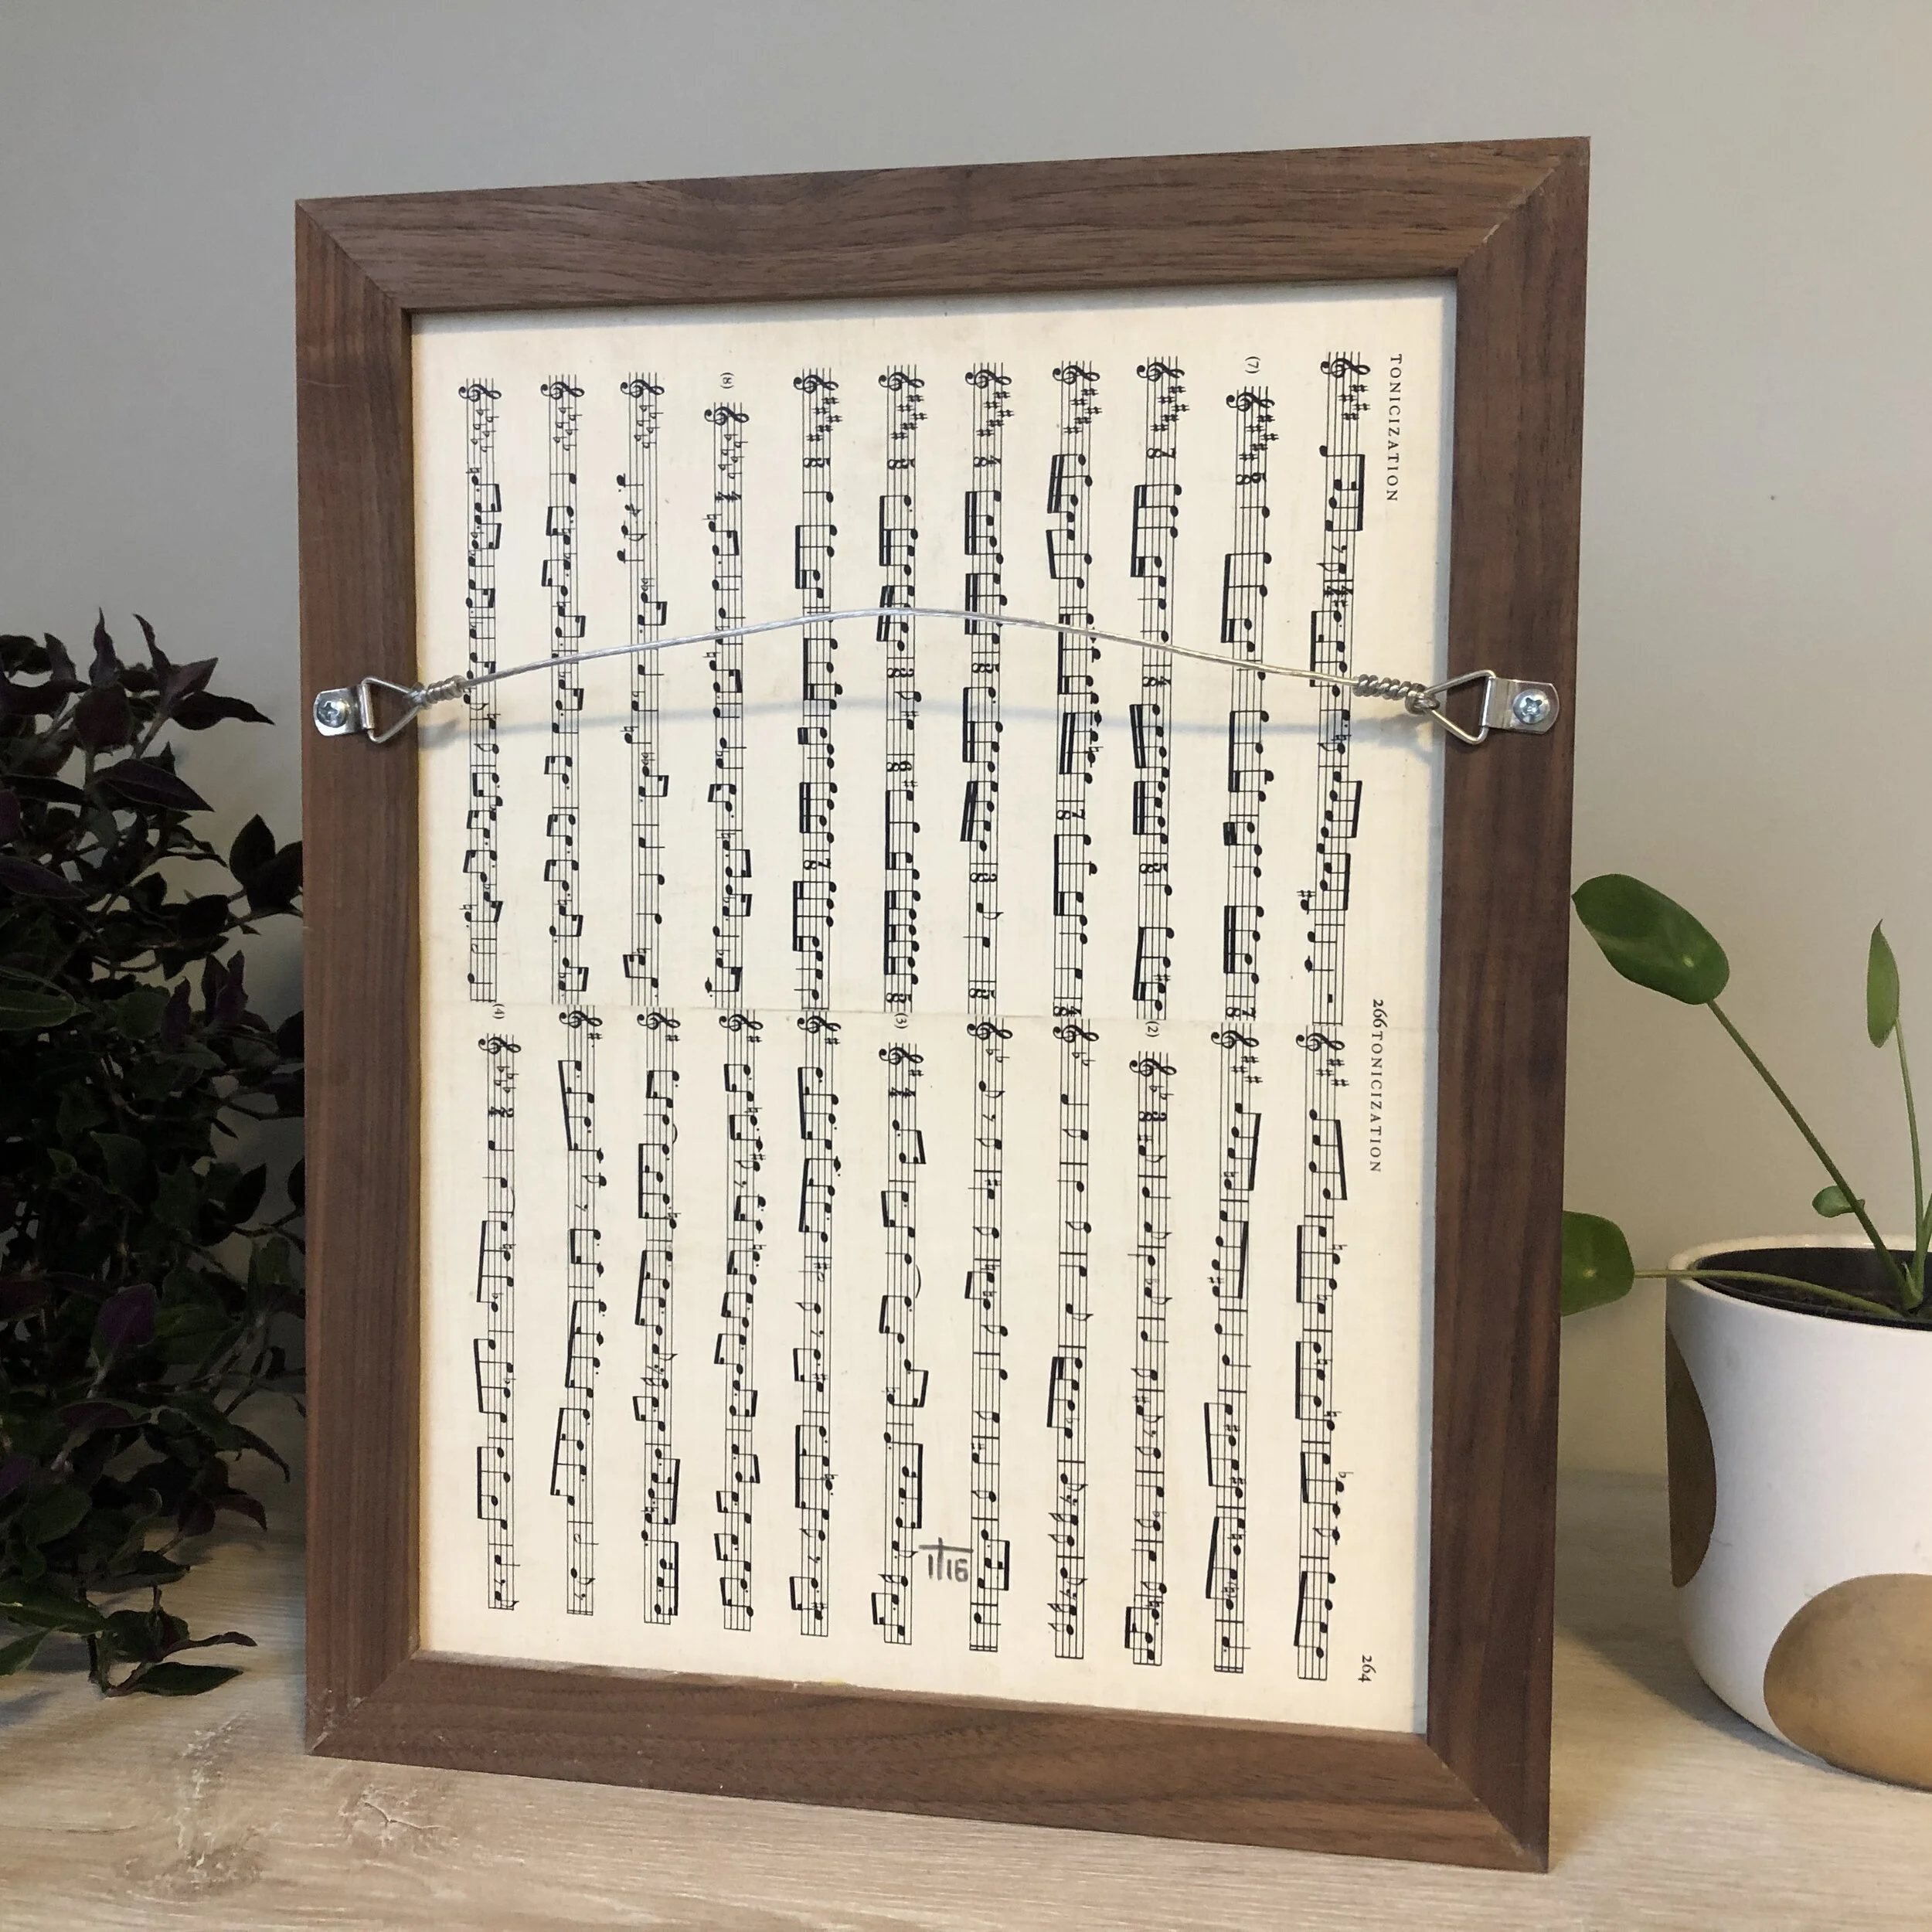 TONICIZATION
(7)
(8)
266
TONICIZATION
(2)
(3)
(4)
264
1/16